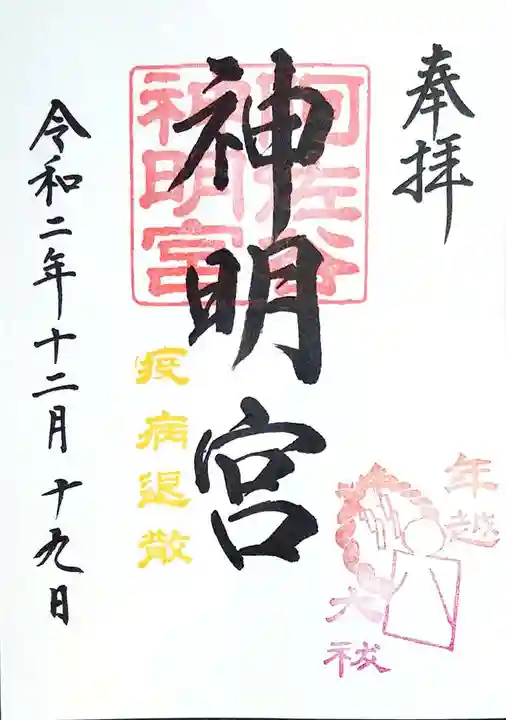 奉拝
阿佐谷
神明宮
神明宮
疫病退散
年越
大祓
令和二年十二月十九日